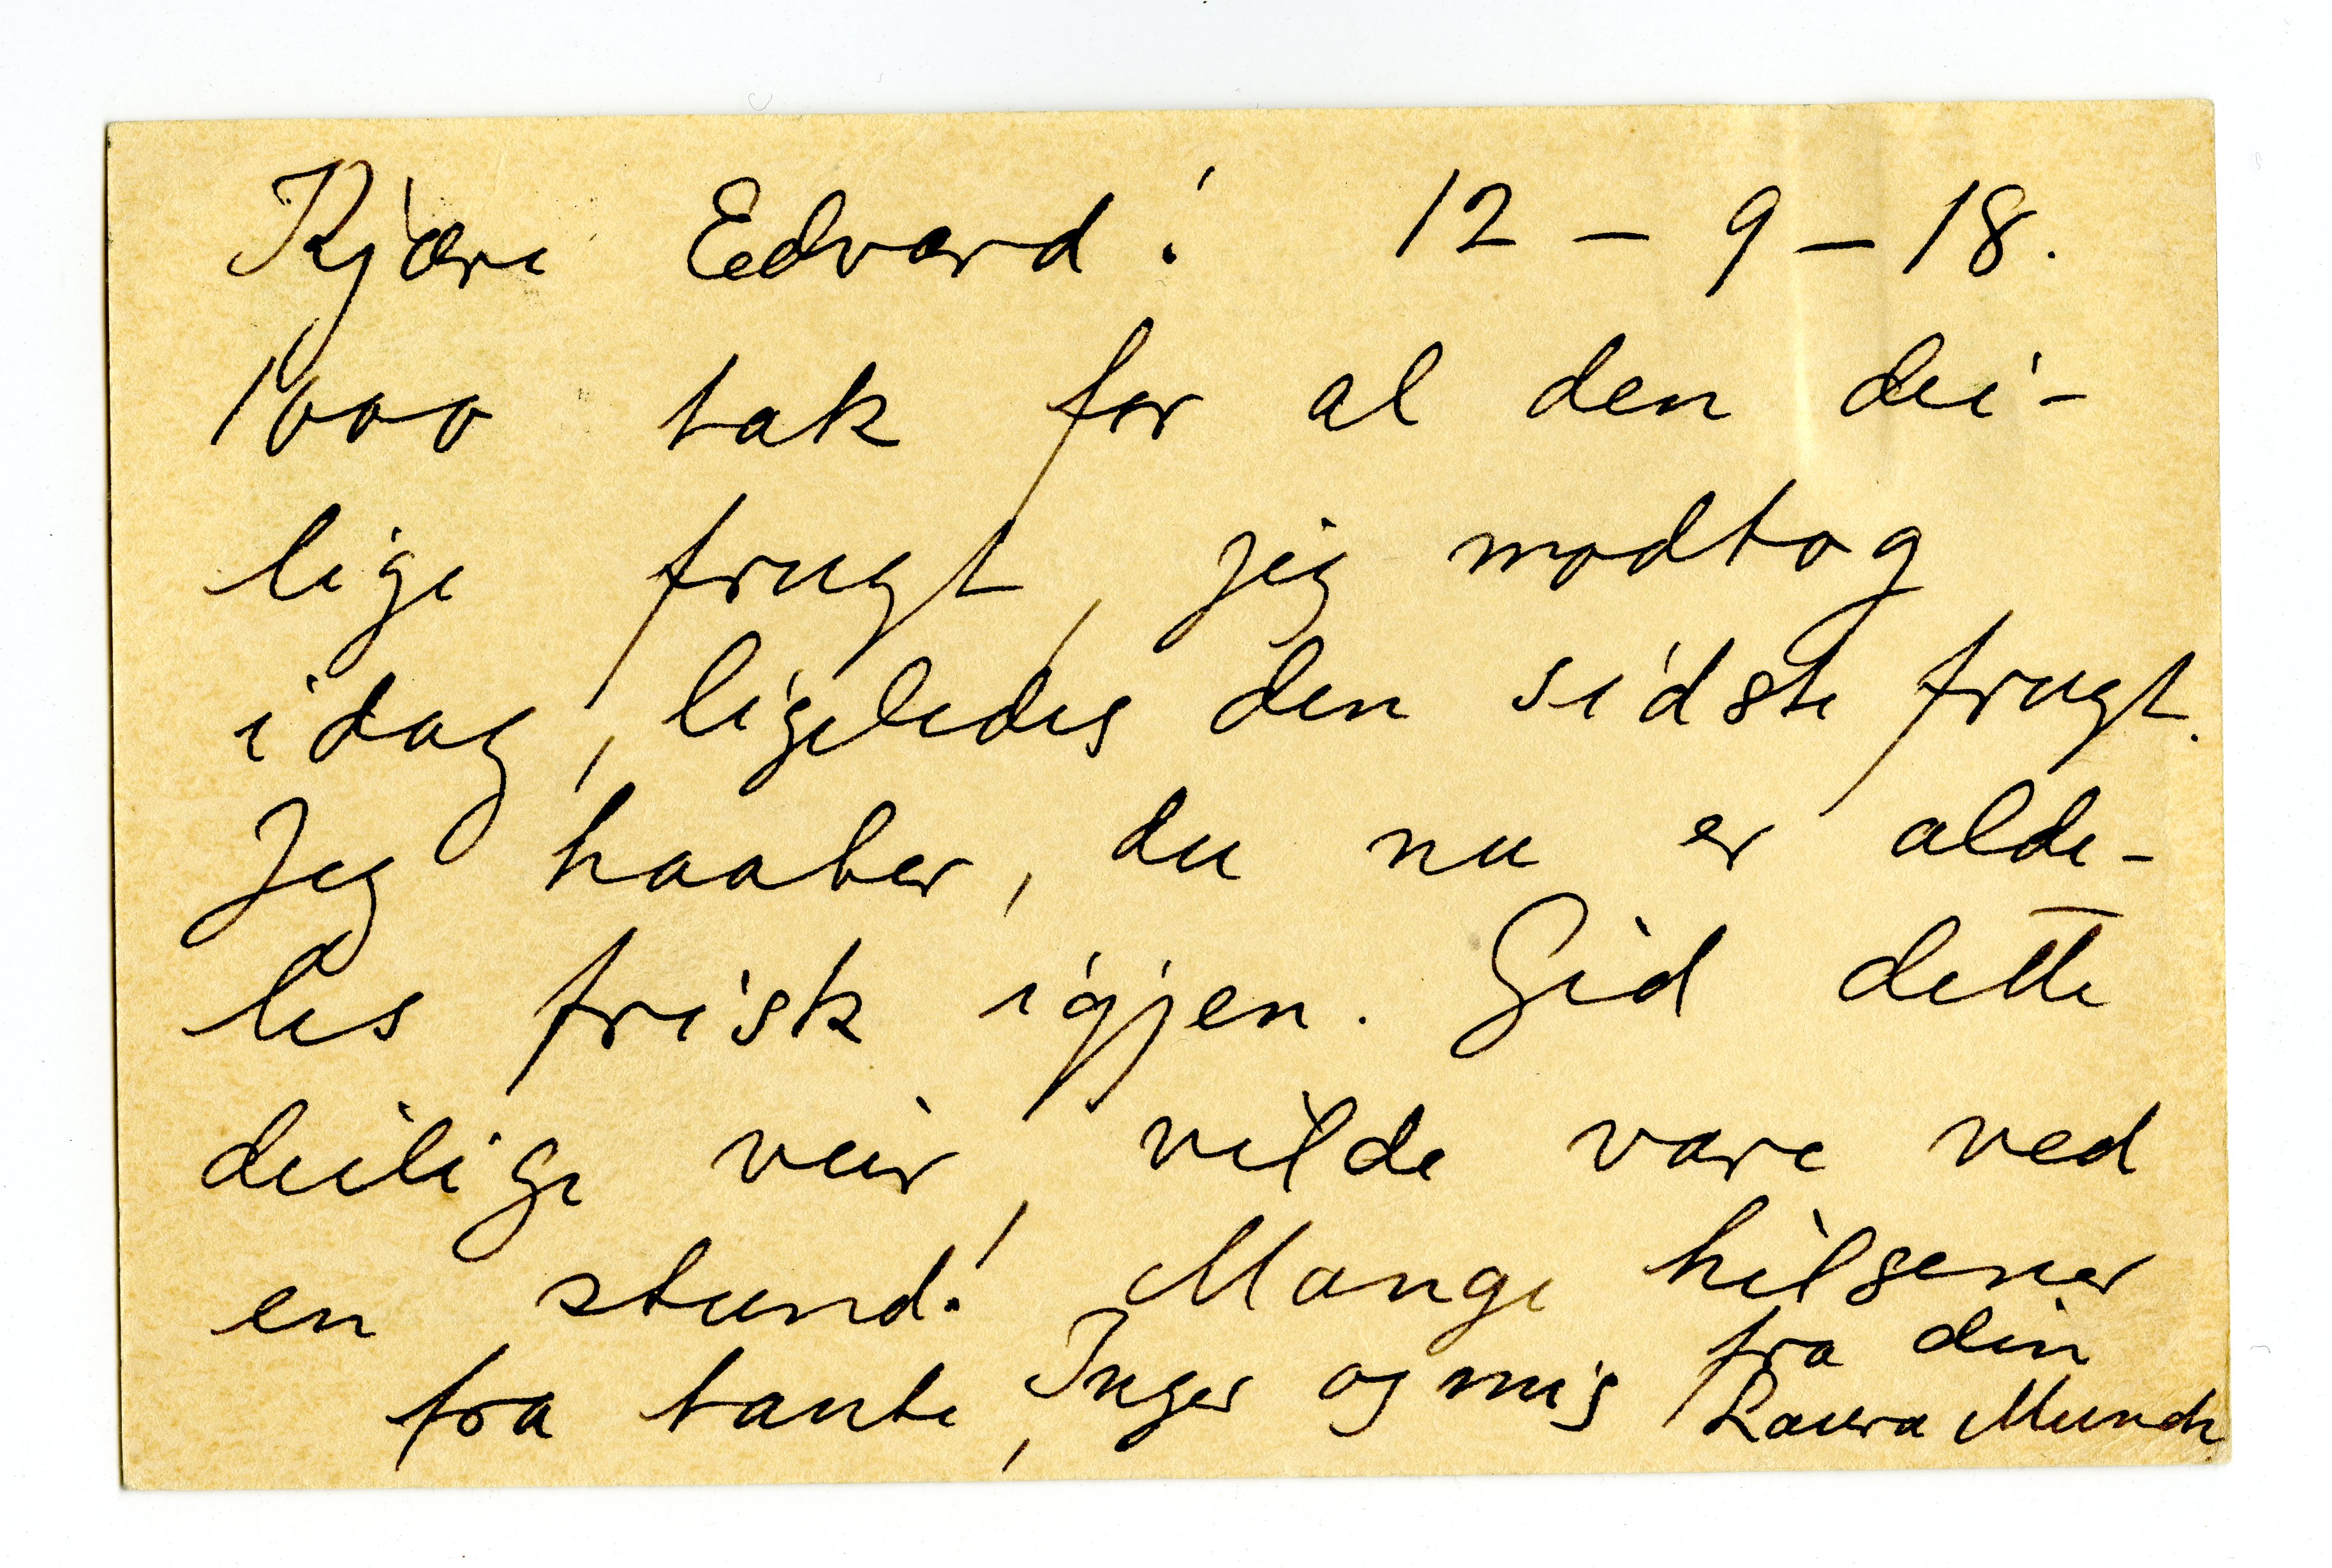 Kjære Edvard! 12 – 9 – 18.
1000 tak for al den dei-
lige frugt, jeg modtog
idag, ligeledes den sidste frugt.
Jeg haaber, du nu er alde-
les frisk igjen. Gid dette
deilige veir, vilde vare ved
en stund! Mange hilsener
fra tante, Inger og mig fra din
Laura Munch